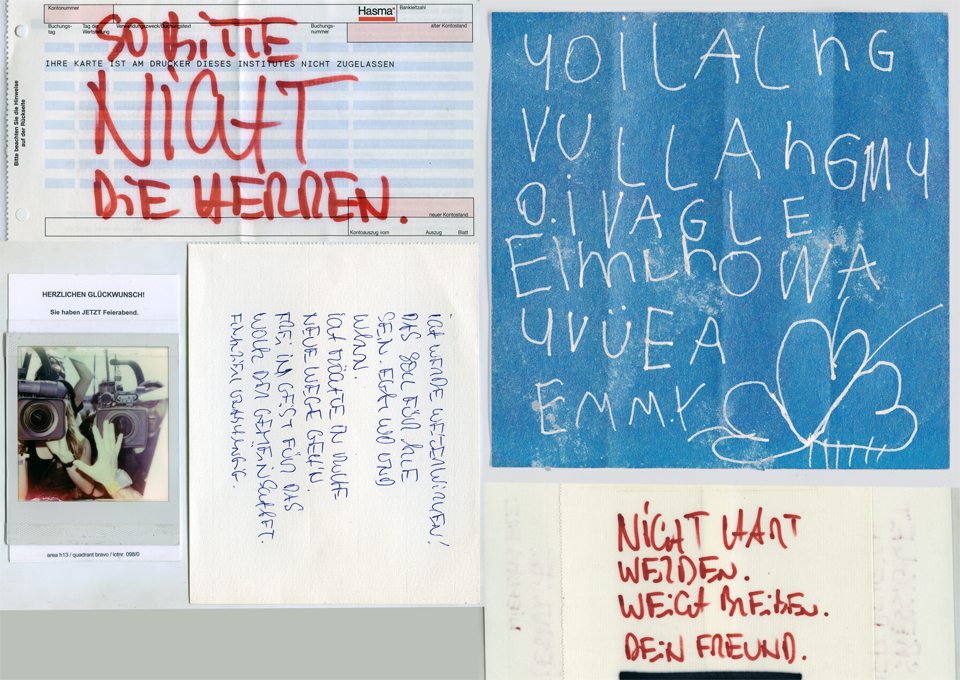 Kontonummer
Hasma
Bankleitzahl
Buchungs-
tag
Tag der
Wertstellung
Verwendungszweck/Buchungstext
Buchungs-
nummer
alter Kontostand
IHRE KARTE IST AM DRUCKER DIESES INSTITUTES NICHT ZUGELASSEN
SO BITTE
NICHT
DIE HERREN.
Bitte beachten Sie die Hinweise
auf der Rückseite
neuer Kontostand
Kontoauszug vom Auszug Blatt
HERZLICHEN GLÜCKWUNSCH!
Sie haben JETZT Feierabend.
area h13 / quadrant bravo / lotnr. 098/0
ICH WERDE WEITERWIRKEN!
DAS SOLL FÜR ALLE
SEIN. EGAL WO UND
WANN.
ICH MÖCHTE IN RUHE
NEUE WEGE GEHN.
FREI IM GEIST FÜR DAS
WOHL DER GEMEINSCHAFT.
FINANZIELL UNABHÄNGIG.
YOILALhG
VULLAhGMY
O.IVAGLE
EIMLhOWA
YVÜEA
EMMY
NICHT HART
WERDEN.
WEICH BLEIBEN.
DEIN FREUND.